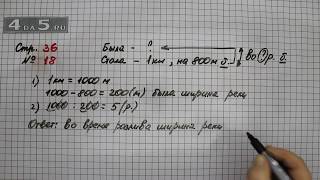 4DA5.RU
Стр. 36
№ 18
Была - ?
Стала - 1 км, на 800 м б. во ? р. б.
1) 1 км = 1000 м
1000 - 800 = 200 (м) была ширина реки
2) 1000 : 200 = 5 (р.)
Ответ: во время разлива ширина реки